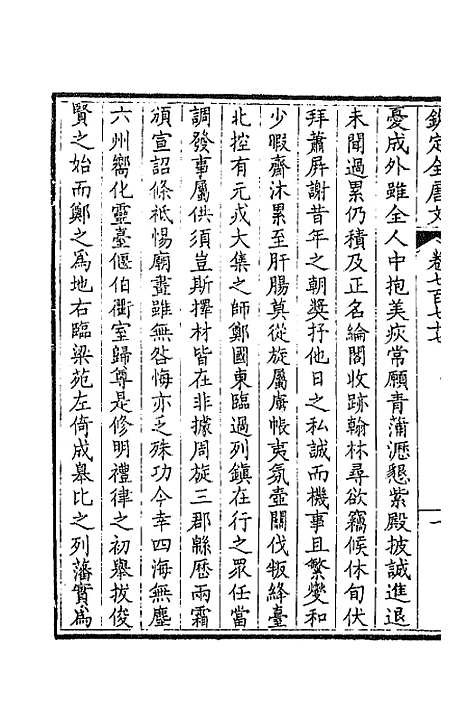 欽定全唐文 卷七百七十七 一
憂成外雖全人中抱美疢常願青蒲瀝懇紫殿披誠進退
未聞過累仍積及正名綸閣收跡翰林尋欲竊候休旬伏
拜蕭屏謝昔年之朝獎抒他日之私誠而機事且繁燮和
少暇齋沐累至肝腸莫從旋屬廬帳夷氛壺關伐叛絳臺
北控有元戎大集之師鄭國東臨過列鎮在行之眾任當
調發事屬供須豈斯擇材皆在非據周旋三郡緜歷兩霜
頒宣詔條祗惕廟畫雖無咎悔亦乏殊功今幸四海無塵
六州嚮化靈臺偃伯衢室歸尊是修明禮律之初舉拔俊
賢之始而鄭之為地右臨梁苑左倚成皋比之列藩實為